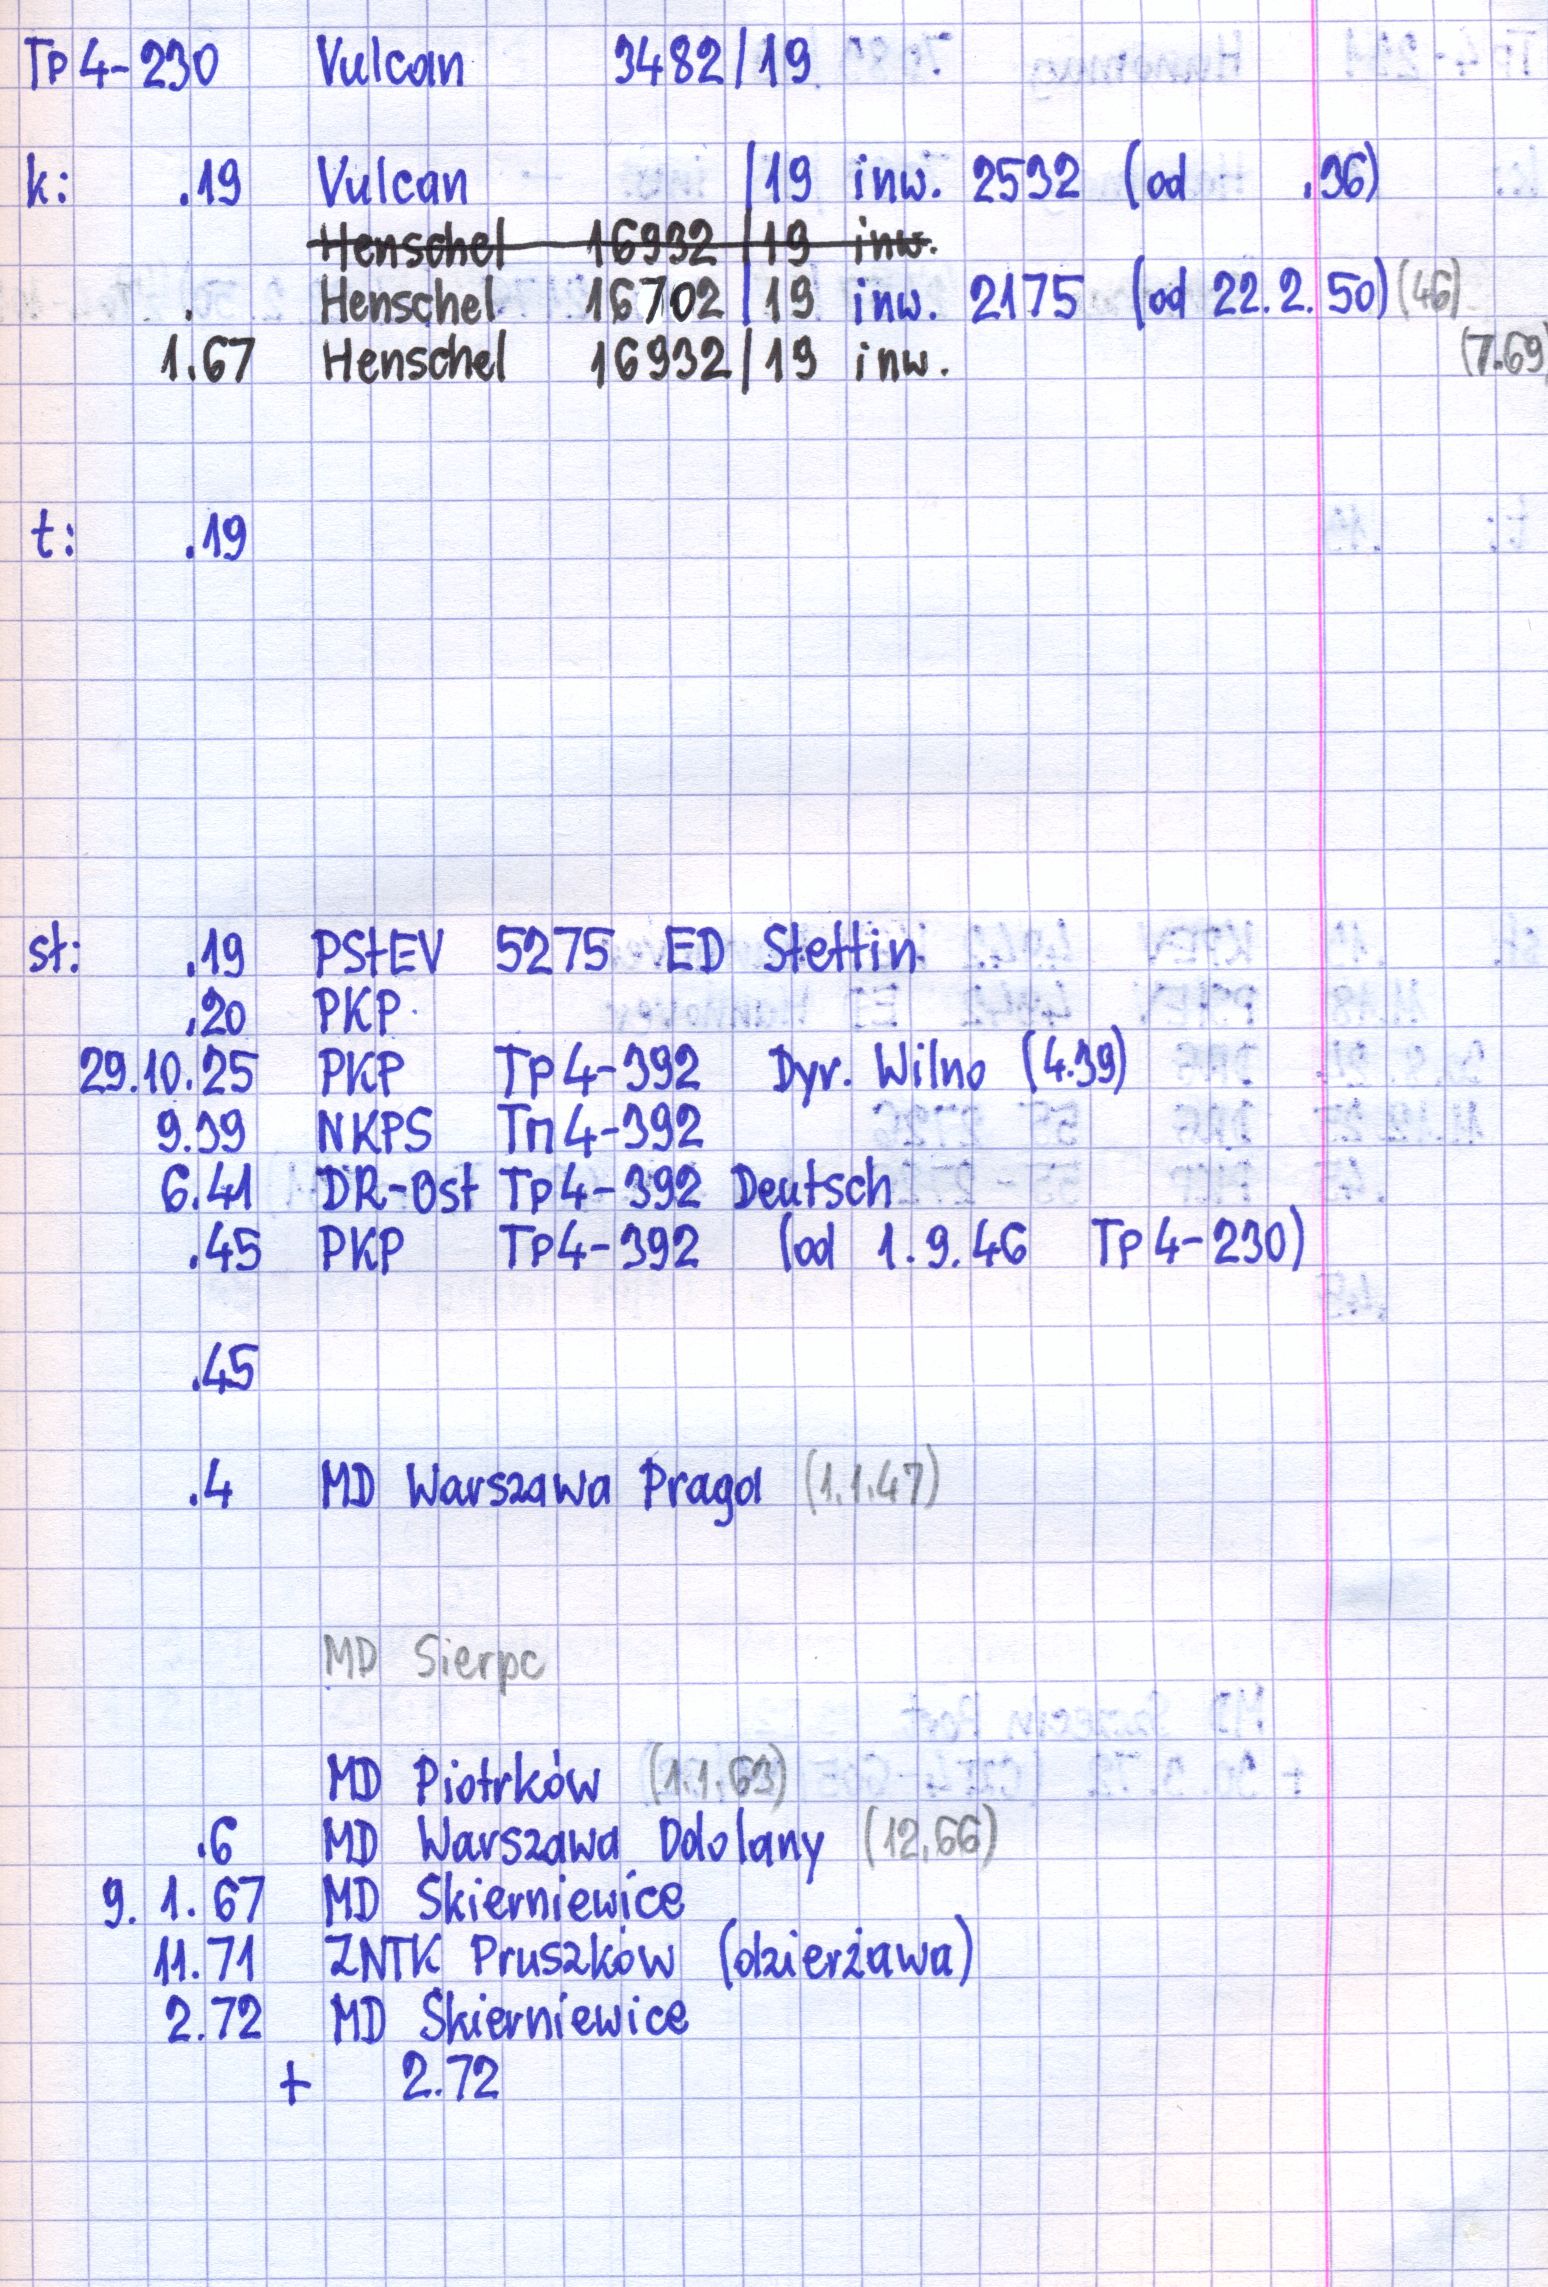 Tp4-230 Vulcan 3482/19
k: .19 Vulcan /19 inw. 2532 (od .36)
Henschel 16932/19 inw.
. Henschel 16702/19 inw. 2175 (od 22.2.50) (46)
1.67 Henschel 16932/19 inw. (7.69)
t: .19
st: .19 PStEV 5275 ED Stettin
.20 PKP
29.10.25 PKP Tp4-392 Dyr. Wilno (4.39)
9.39 NKPS Тп4-392
6.41 DR-Ost Tp4-392 Deutsch
.45 PKP Tp4-392 (od 1.9.46 Tp4-230)
.45
.4 MD Warszawa Praga (1.1.47)
MD Sierpc
MD Piotrków (1.1.63)
.6 MD Warszawa Odolany (12.66)
9.1.67 MD Skierniewice
11.71 ZNTK Pruszków (dzierżawa)
2.72 MD Skierniewice
+ 2.72